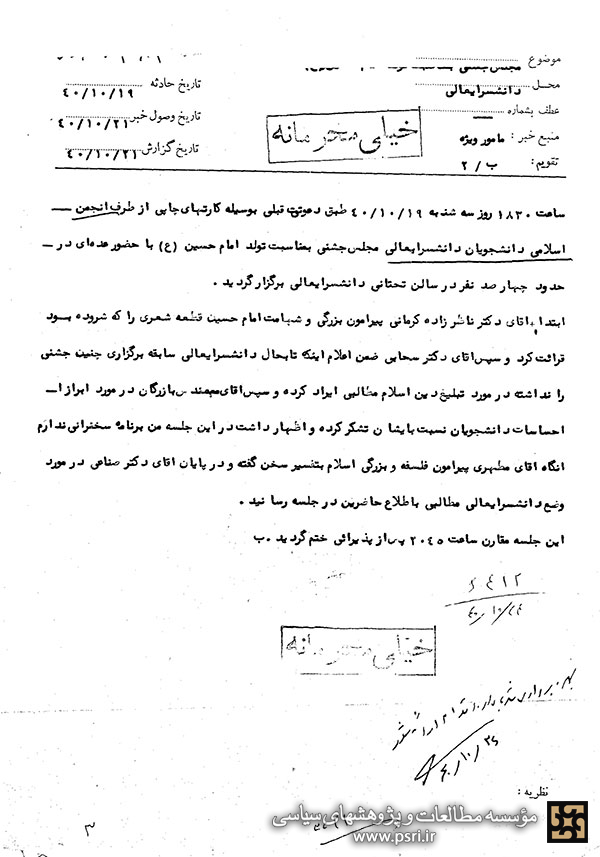 موضوع مجلس جشنی بمناسبت تولد امام
محل دانشسرایعالی
عطف بشماره
منبع خبر : مامور ویژه
تقویم : ب / ۲
خیلی محرمانه
تاریخ حادثه ۴۰/۱۰/۱۹
تاریخ وصول خبر ۴۰/۱۰/۲۱
تاریخ گزارش ۴۰/۱۰/۲۱
ساعت ۱۸۳۰ روز سه شنبه ۴۰/۱۰/۱۹ طبق دعوت قبلی بوسیله کارتهای چاپی از طرف انجمن
اسلامی دانشجویان دانشسرایعالی مجلس جشنی بمناسبت تولد امام حسین (ع) با حضور عده‌ای در
حدود چهار صد نفر در سالن تحتانی دانشسرایعالی برگزار گردید .
ابتدا آقای دکتر ناظر زاده کرمانی پیرامون بزرگی و شهامت امام حسین قطعه شعری را که سروده بود
قرائت کرد و سپس آقای دکتر سحابی ضمن اعلام اینکه تابحال دانشسرایعالی سابقه برگزاری چنین جشنی
را نداشته در مورد تبلیغ دین اسلام مطالبی ایراد کرده و سپس آقای مهندس بازرگان در مورد ابراز ا
حساسات دانشجویان نسبت بایشان تشکر کرده و اظهار داشت در این جلسه من برنامه سخنرانی ندارم
انگاه آقای مطهری پیرامون فلسفه و بزرگی اسلام بتفسیر سخن گفته و در پایان آقای دکتر صناعی در مورد
وضع دانشسرایعالی مطالبی باطلاع حاضرین در جلسه رسانید .
این جلسه مقارن ساعت ۲۰۴۵ پس از پذیرائی ختم گردید .ب
۴۰/۱۰/۲۴
خیلی محرمانه
نظریه :
۳
مؤسسه مطالعات و پژوهشهای سیاسی
www.psri.ir